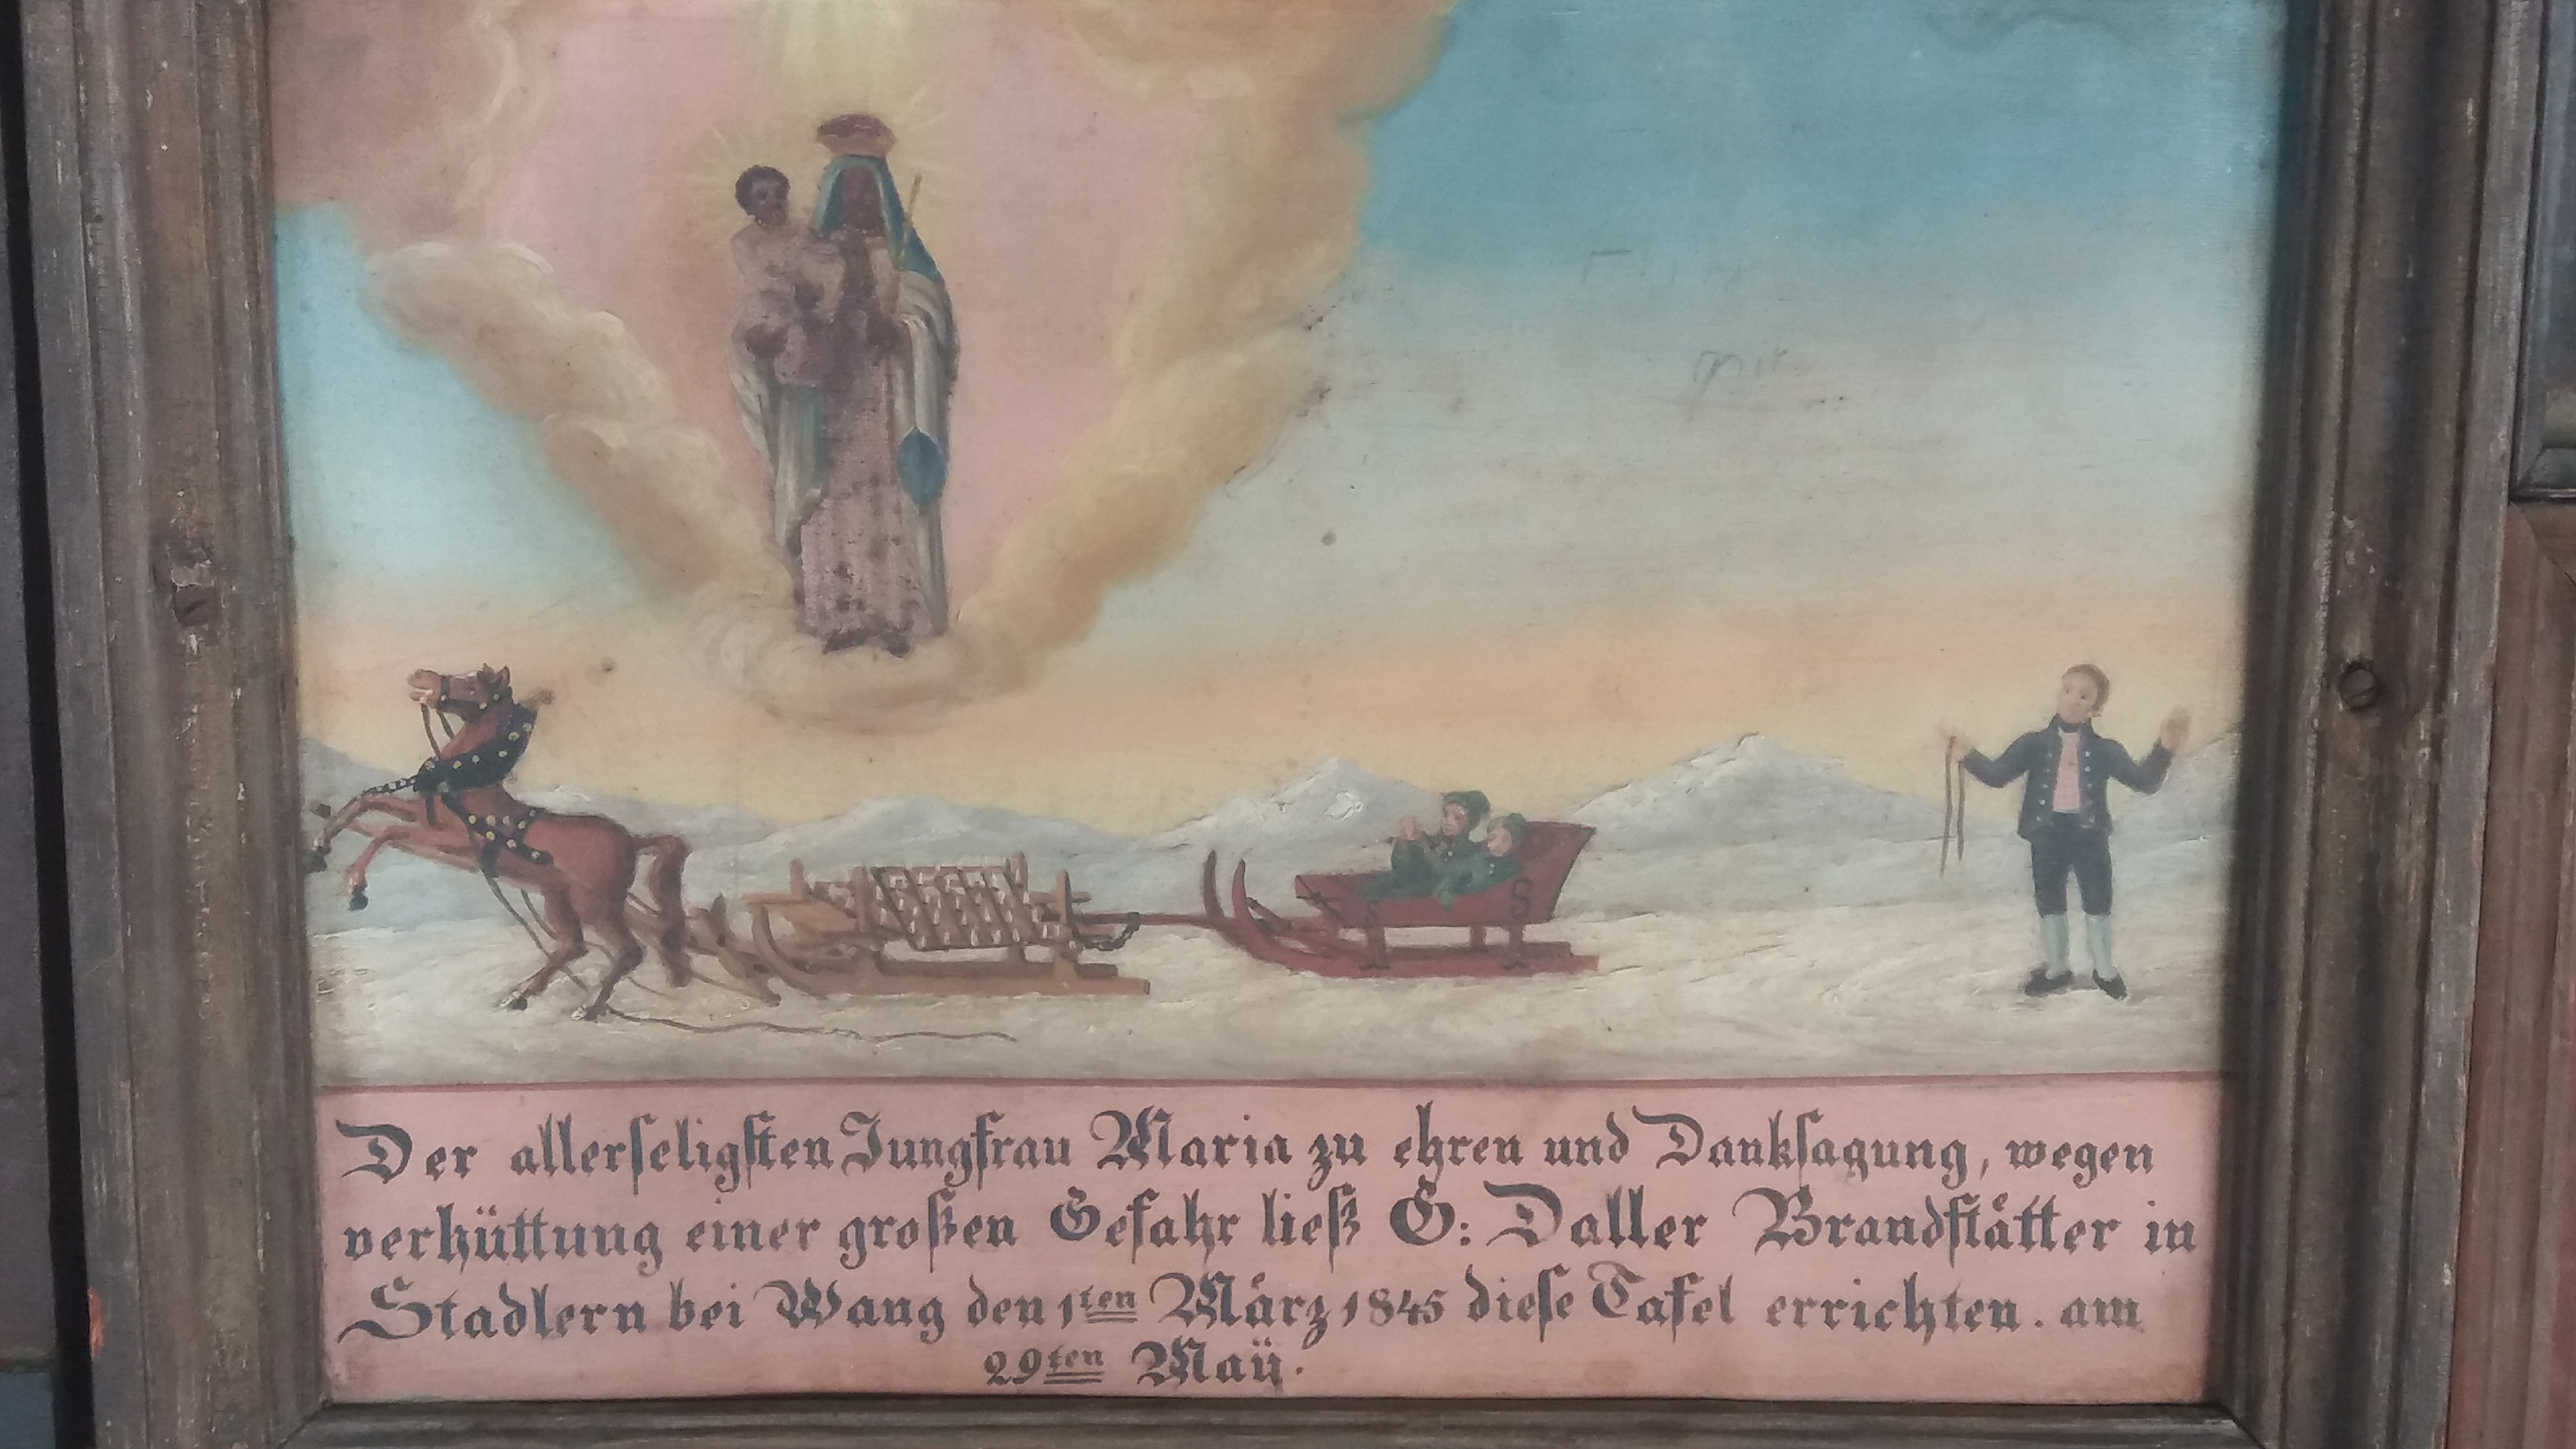 mit
S
Der allerseligsten Jungfrau Maria zu ehren und Danksagung, wegen
verhüttung einer großen Gefahr ließ G: Daller Brandstätter in
Stadlern bei Wang den 1ten März 1845 diese Tafel errichten. am
29ten Maÿ.